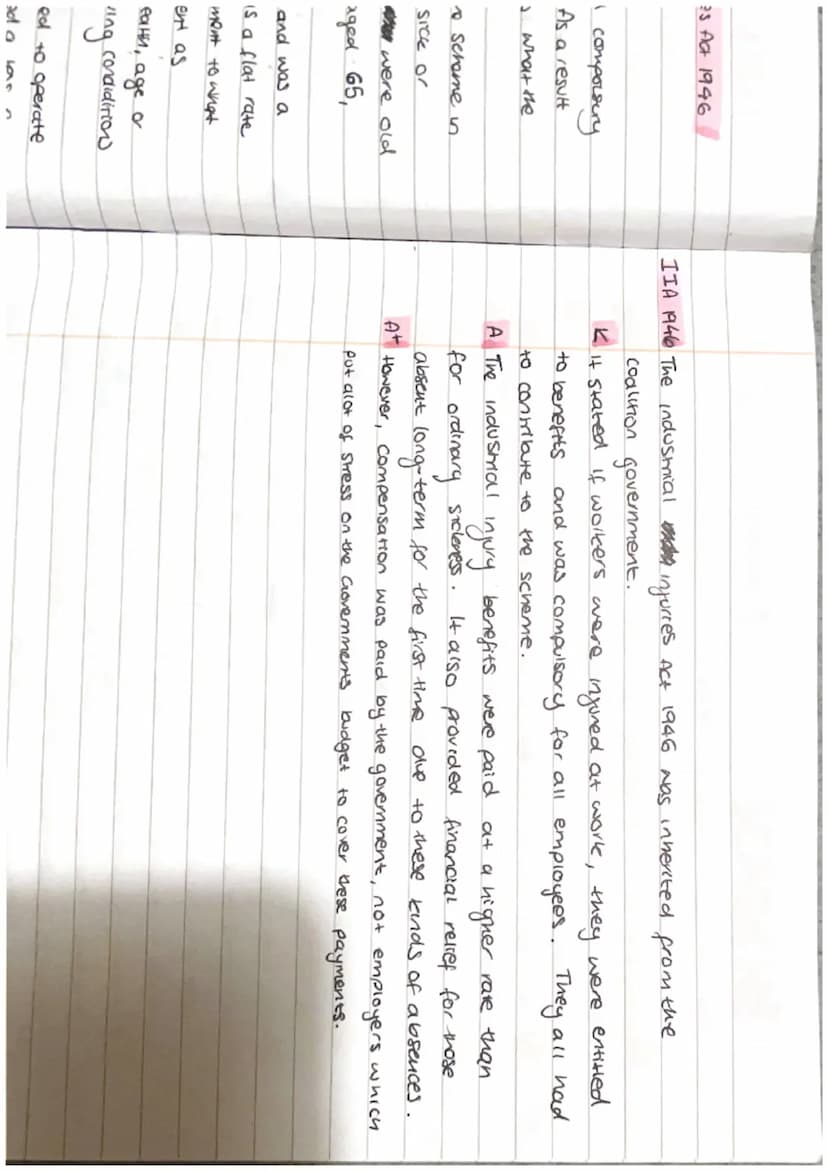 es Act 1946
compolsory
As a result
what the
scheme in
sick or
were old
aged 65,
and was a
is a flat rate
ment to what
ent as
eath, age or
ing condidition)
ed to operate
IIA 1946 The industrial injuries Act 1946 was inherited from the
coalition government.
K It stated if workers were injured at work, they were entitled
to benefits and was compulsory for all employees. They all had
to contribute to the scheme.
A The industrial injury benefits were paid at a higher rate than
for ordinary sickness. It also provided financial relief for those
absent long-term for the first time due to these kinds of absences.
A+ However, compensation was paid by the government, not employers which
put alot of stress on the Governments budget to cover these payments.